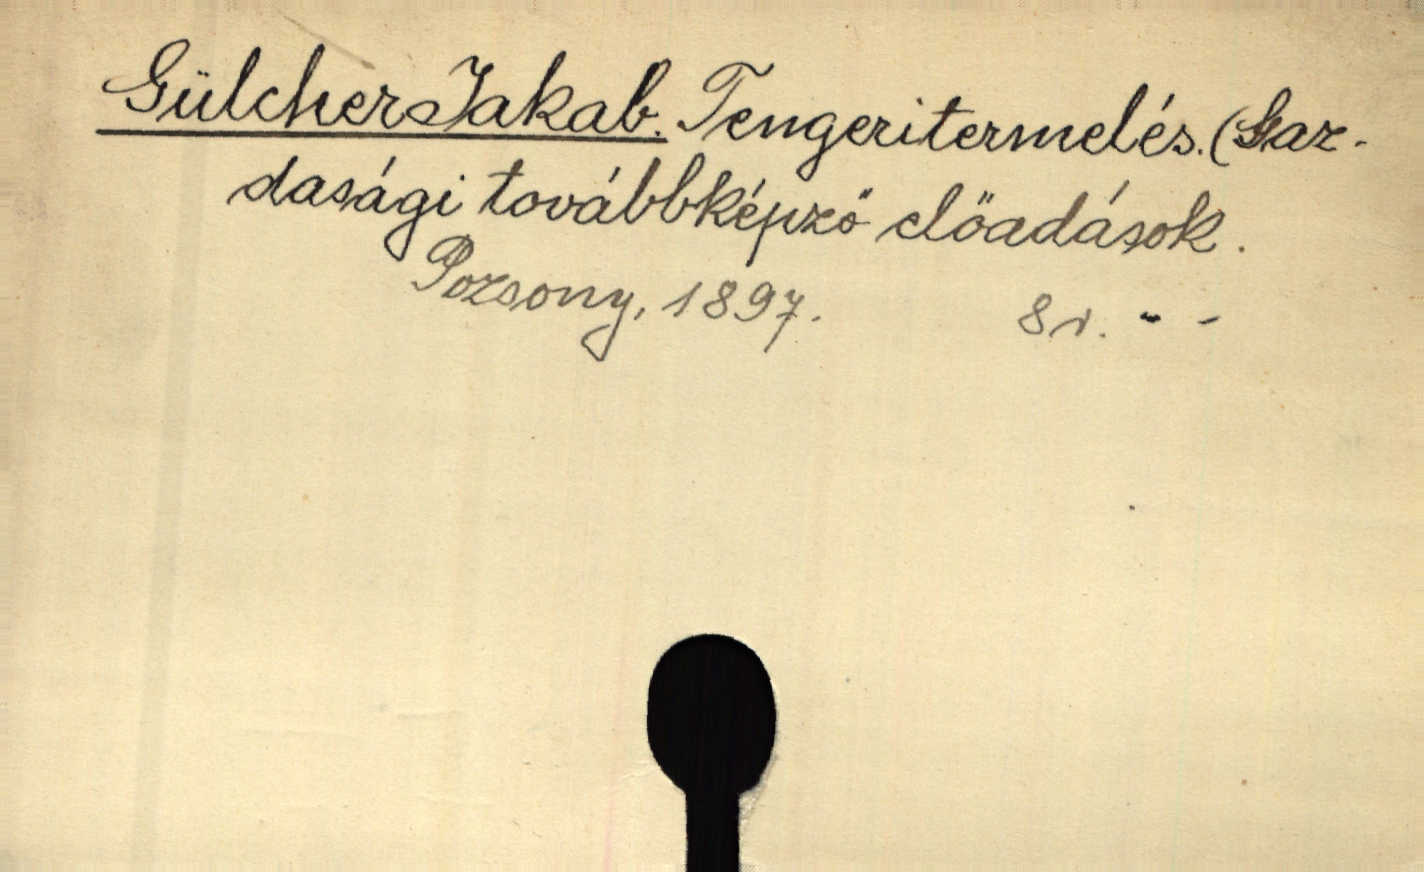 Gülcher Jakab. Tengeritermelés. (Gaz-
dasági továbbképző előadások.
Pozsony, 1897. 8r. - -